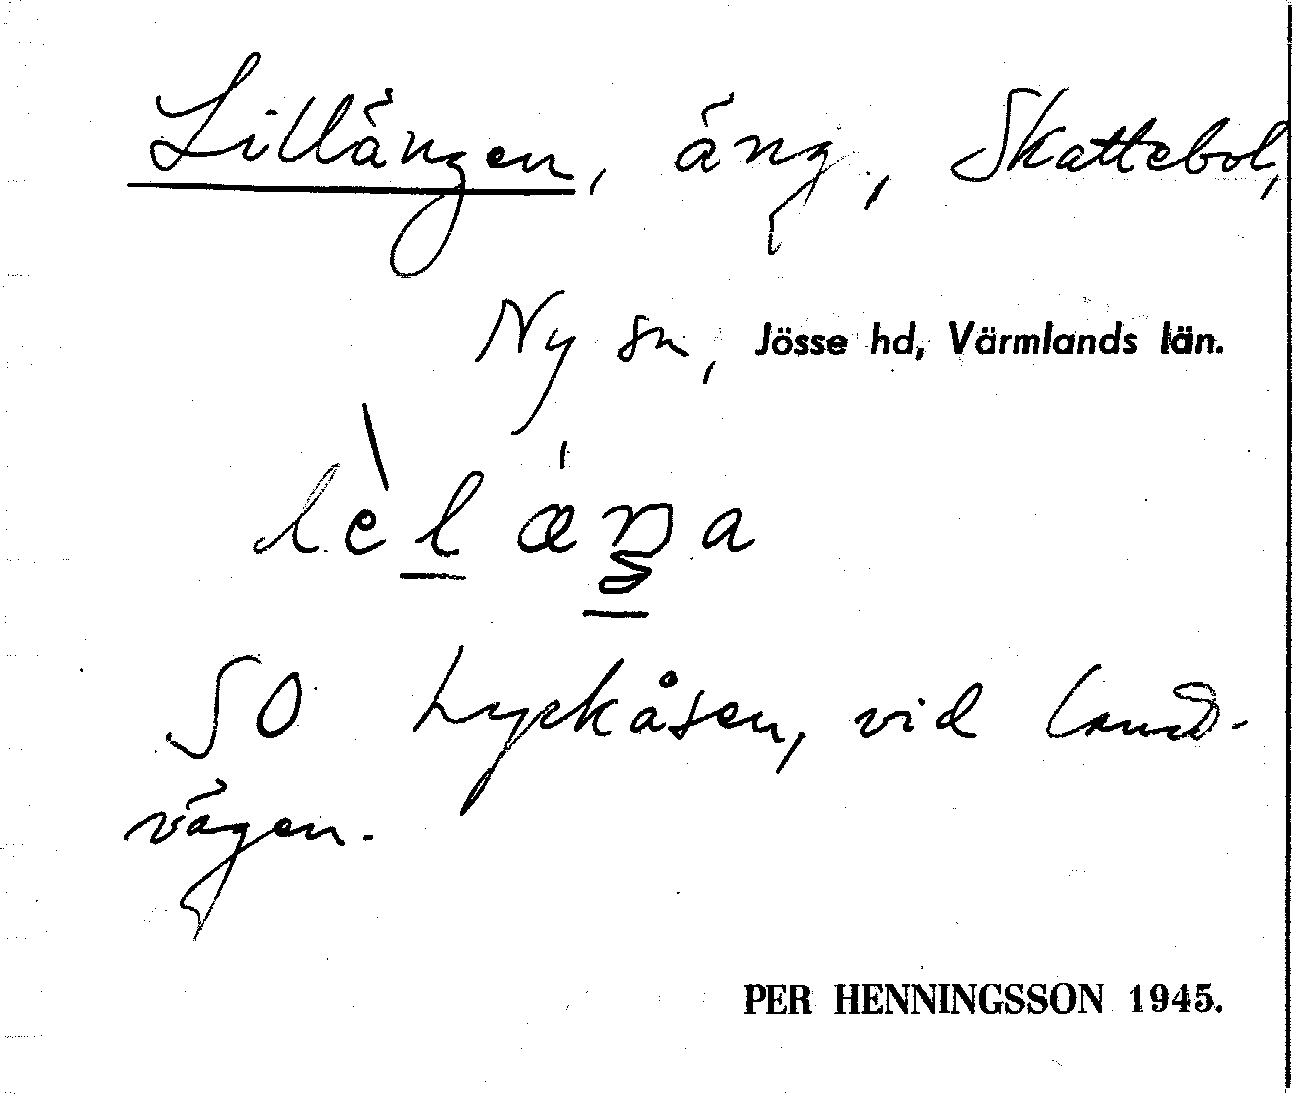 Lillängen, äng, Skattebol,
Ny sn, Jösse hd, Värmlands län.
lèlæ̀ŋa
SO Lyckåsen, vid lands-
vägen.
PER HENNINGSSON 1945.